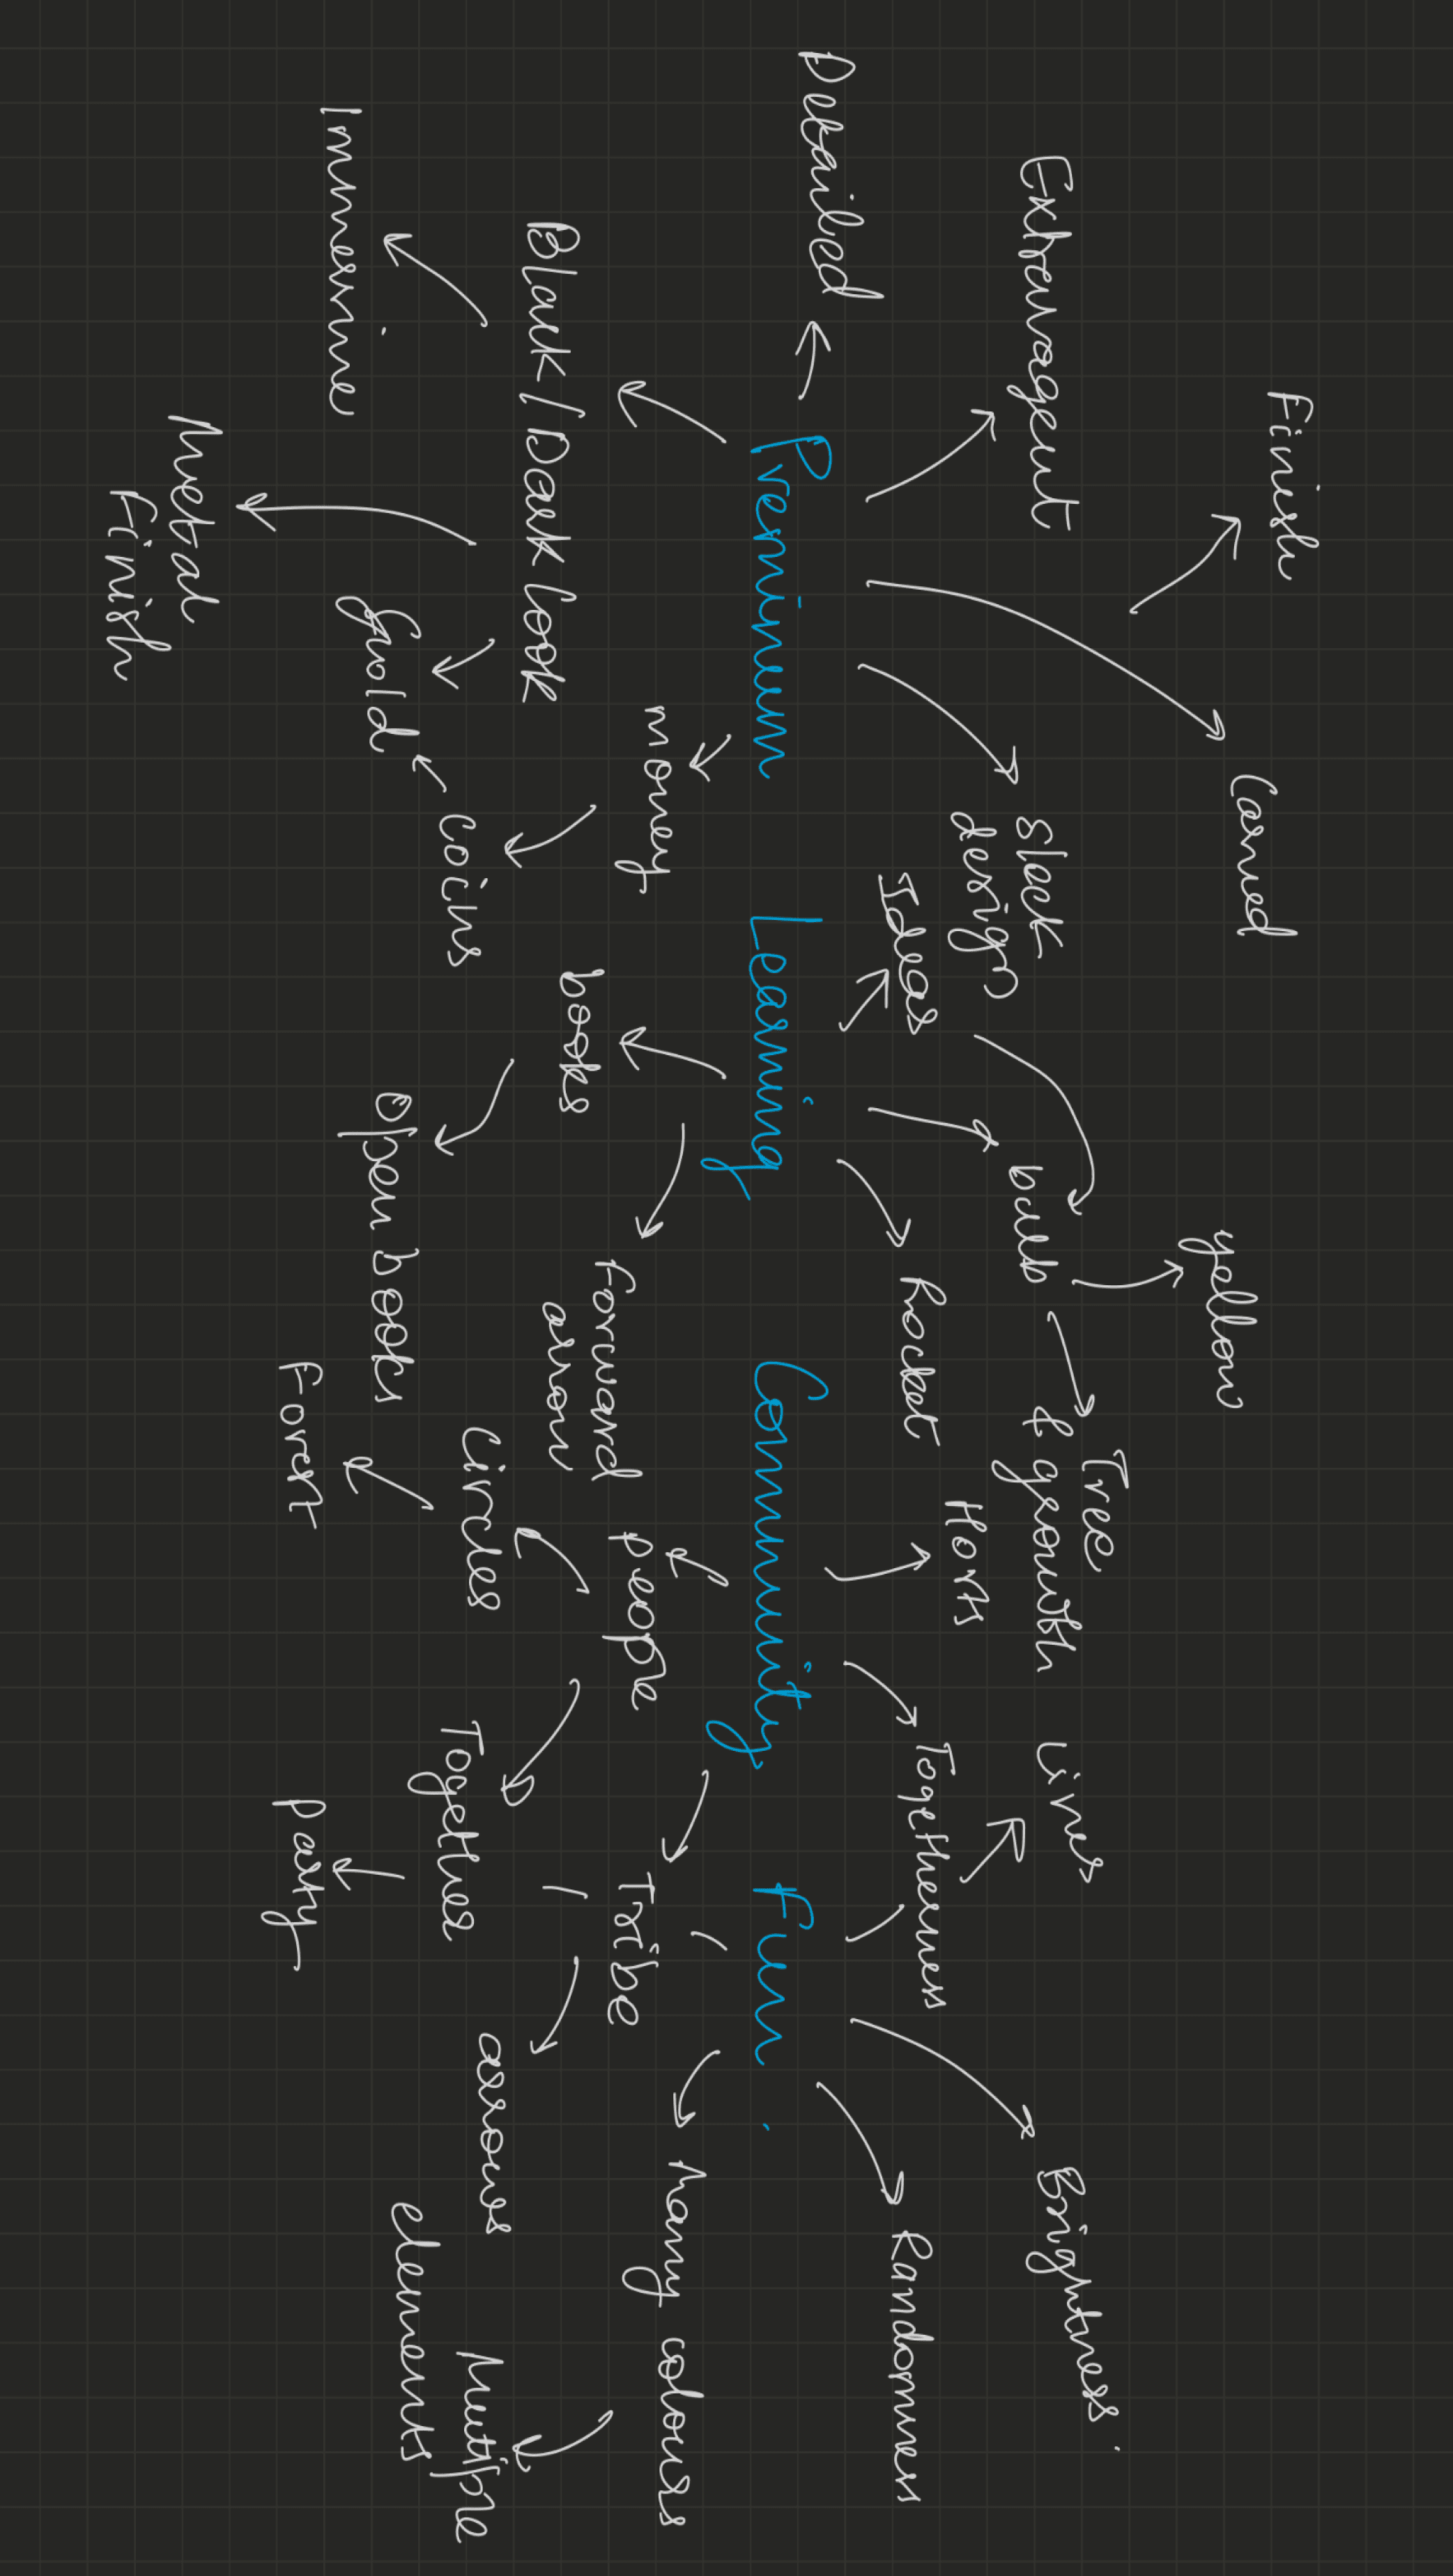 Finish
Carved
yellow
Extravagent
Sleek
design
bulb
Tree
& growth
Lines
Brightness.
Detailed
Ideas
Rocket
Togetherness
Randomness
Premium
Learning
Community
Fun.
money
people
Tribe
Many colours
Black/Dark look
books
Forward
arrow
Immersive
Gold
Coins
Open books
Circles
Together
arrows
Multiple
elements
Metal
finish
Forest
Party